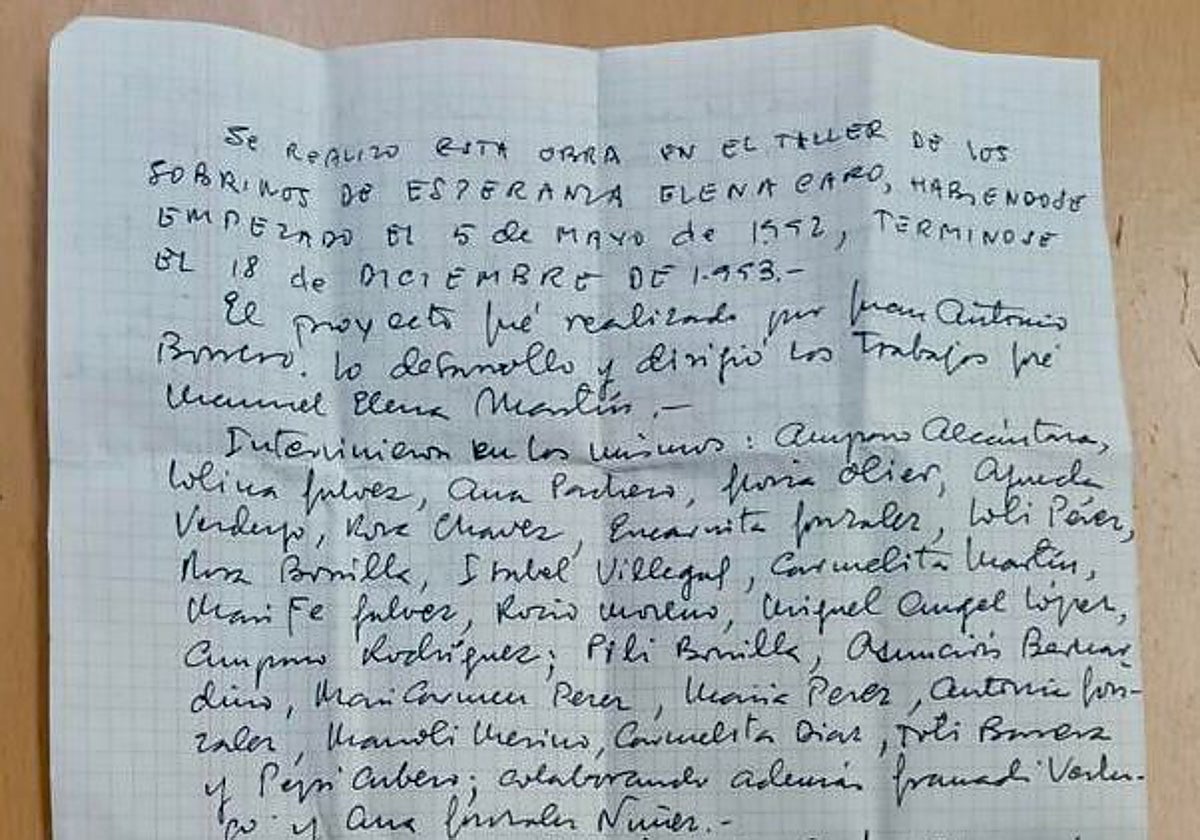 Se REALIZO ESTA OBRA EN EL TALLER DE LOS
SOBRINOS DE ESPERANZA ELENA CARO, HABIENDOSE
EMPEZADO EL 5 de MAYO de 1992, TERMINOSE
EL 18 de DICIEMBRE DE 1.993.-
El proyecto fué realizado por Juan Antonio
Borrero. Lo desarrollo y dirigió los trabajos fué
Manuel Elena Martín.-
Intervinieron en los mismos: Amparo Alcántara,
Lolina Gulvez, Ana Pacheco, Gloria Olier, Agueda
Verdugo, Rosa Chavez, Encarnita González, Loli Pérez,
Rosa Bonilla, Isabel Villegas, Carmelita Martín,
Mari Fe Gulvez, Rocio Moreno, Miguel Angel López,
Amparo Rodríguez; Pili Bonilla, Asunción Bernar-
dino, Mari Carmen Perez, María Perez, Antonia Gon-
zalez, Manoli Merino, Carmelita Diaz, Loli Barrera
y Pepi Cubero; colaborando además Granadi Verdu-
go y Ana González Nuñez.-